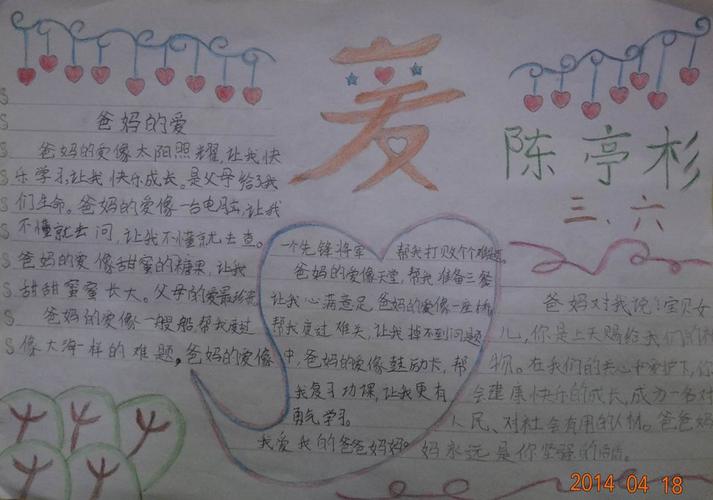 爱
陈亭杉
三、六
爸妈的爱
爸妈的爱像太阳照耀,让我快
乐学习,让我快乐成长。是父母给了我
们生命。爸妈的爱像一台电脑,让我
不懂就去问,让我不懂就去查。
爸妈的爱像甜蜜的糖果,让我
甜甜蜜蜜长大。父母的爱最
爸妈的爱像一艘船,帮我度过
像大海一样的难题。爸妈的爱像
一个先锋将军 帮我打败个个难题。
爸妈的爱像天堂,帮我准备三餐
让我心满意足。爸妈的爱像一座桥,
帮我度过难关,让我掉不到问题
中,爸妈的爱像鼓励卡,帮
我复习功课,让我更有
勇气学习。
我爱我的爸爸妈妈。
爸妈对我说:宝贝女
儿,你是上天赐给我们的礼
物。在我们的关心和爱护下,你
会健康快乐的成长,成为一名对
人民、对社会有用的人材。爸爸妈
妈永远是你坚强的后盾。
2014 04 18